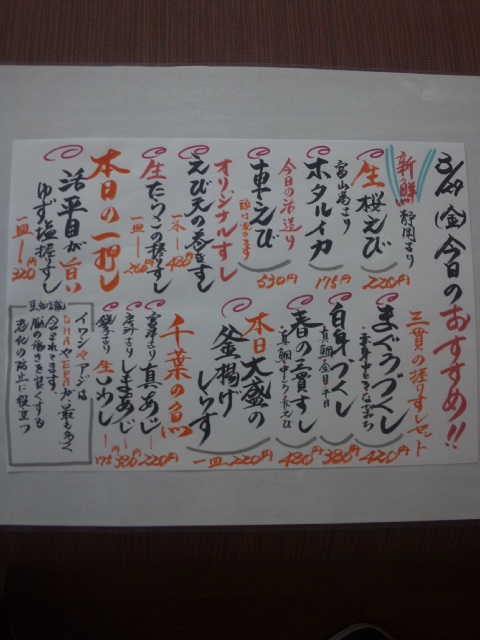 (金)今日のおすすめ!!
新鮮
静岡より
生桜えび
220円
富山湾より
ホタルイカ
175円
今日の活造り
車えび
頭は焼きます
530円
オリジナルすし
えび天の巻きすし
一本 480円
生たらこの握りすし
一皿
本日の一押し
活平目が旨い
ゆず塩握りすし
一皿 220円
三貫の握りすしセット
まぐろづくし
420円
白身づくし
真鯛・金目・平目
380円
春の三貫すし
真鯛・中とろ・赤えび
480円
本日大盛の
釜揚げしらす
一皿 220円
千葉の魚
真あじ 220円
しまあじ 380円
銚子より 生いわし 175円
豆知識
イワシやアジは
DHAやEPAが最も多く
含まれてます。
脳の働きを良くする
老化の防止に役立つ